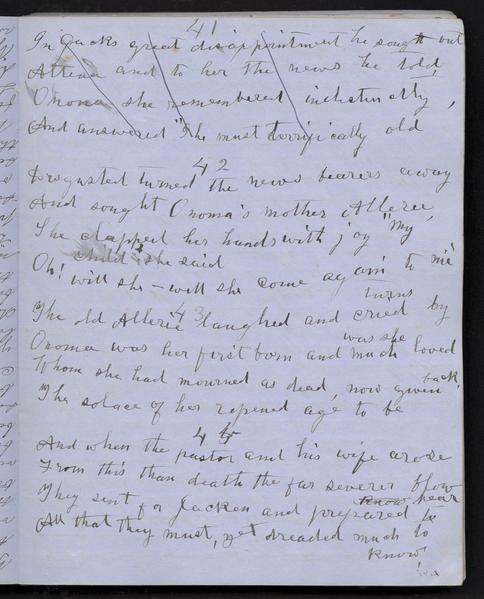 41
In Jacks great disappointment he sought out
Attena and to her the news he told
Onoma she remembered indistinctly,
And answered "She must terrifically old
42
Disgusted turned the news bearers away
And sought Onoma's mother Allerie,
She clapped her hands with joy "My
child" she said
Oh! will she - will she come again to me"
43
The old Allerie laughed and cried by turns
Onoma was her first born and much loved
was she
Whom she had mourned as dead, now given back
The solace of her ripened age to be
44
And when the pastor and his wife arose
From this than death the far severer blow
They sent for Jacken and prepared to know hear
All that they must, yet dreaded much to
know!